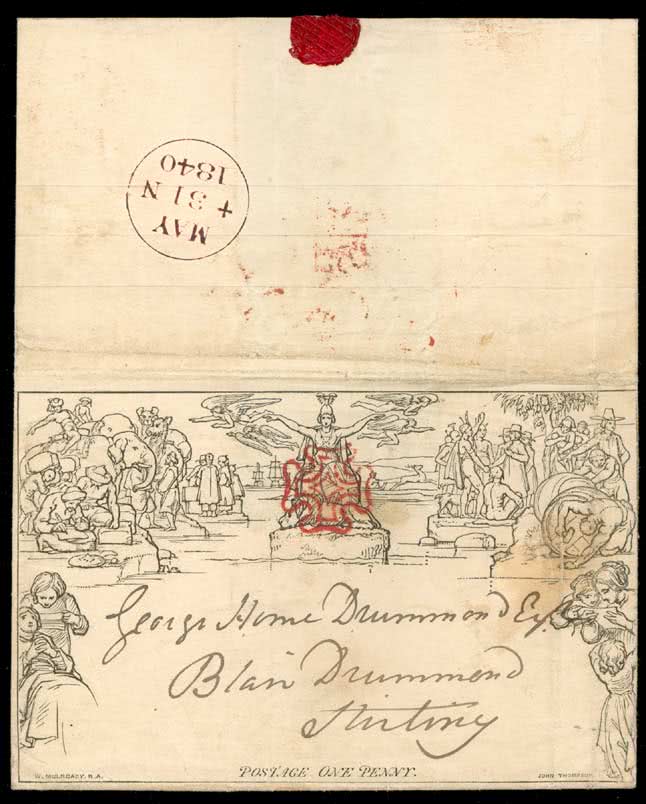 MAY
+ 31 N
1840
George Home Drummond Esqr
Blair Drummond
Stirling
POSTAGE ONE PENNY.
W. MULREADY. R.A.
JOHN THOMPSON